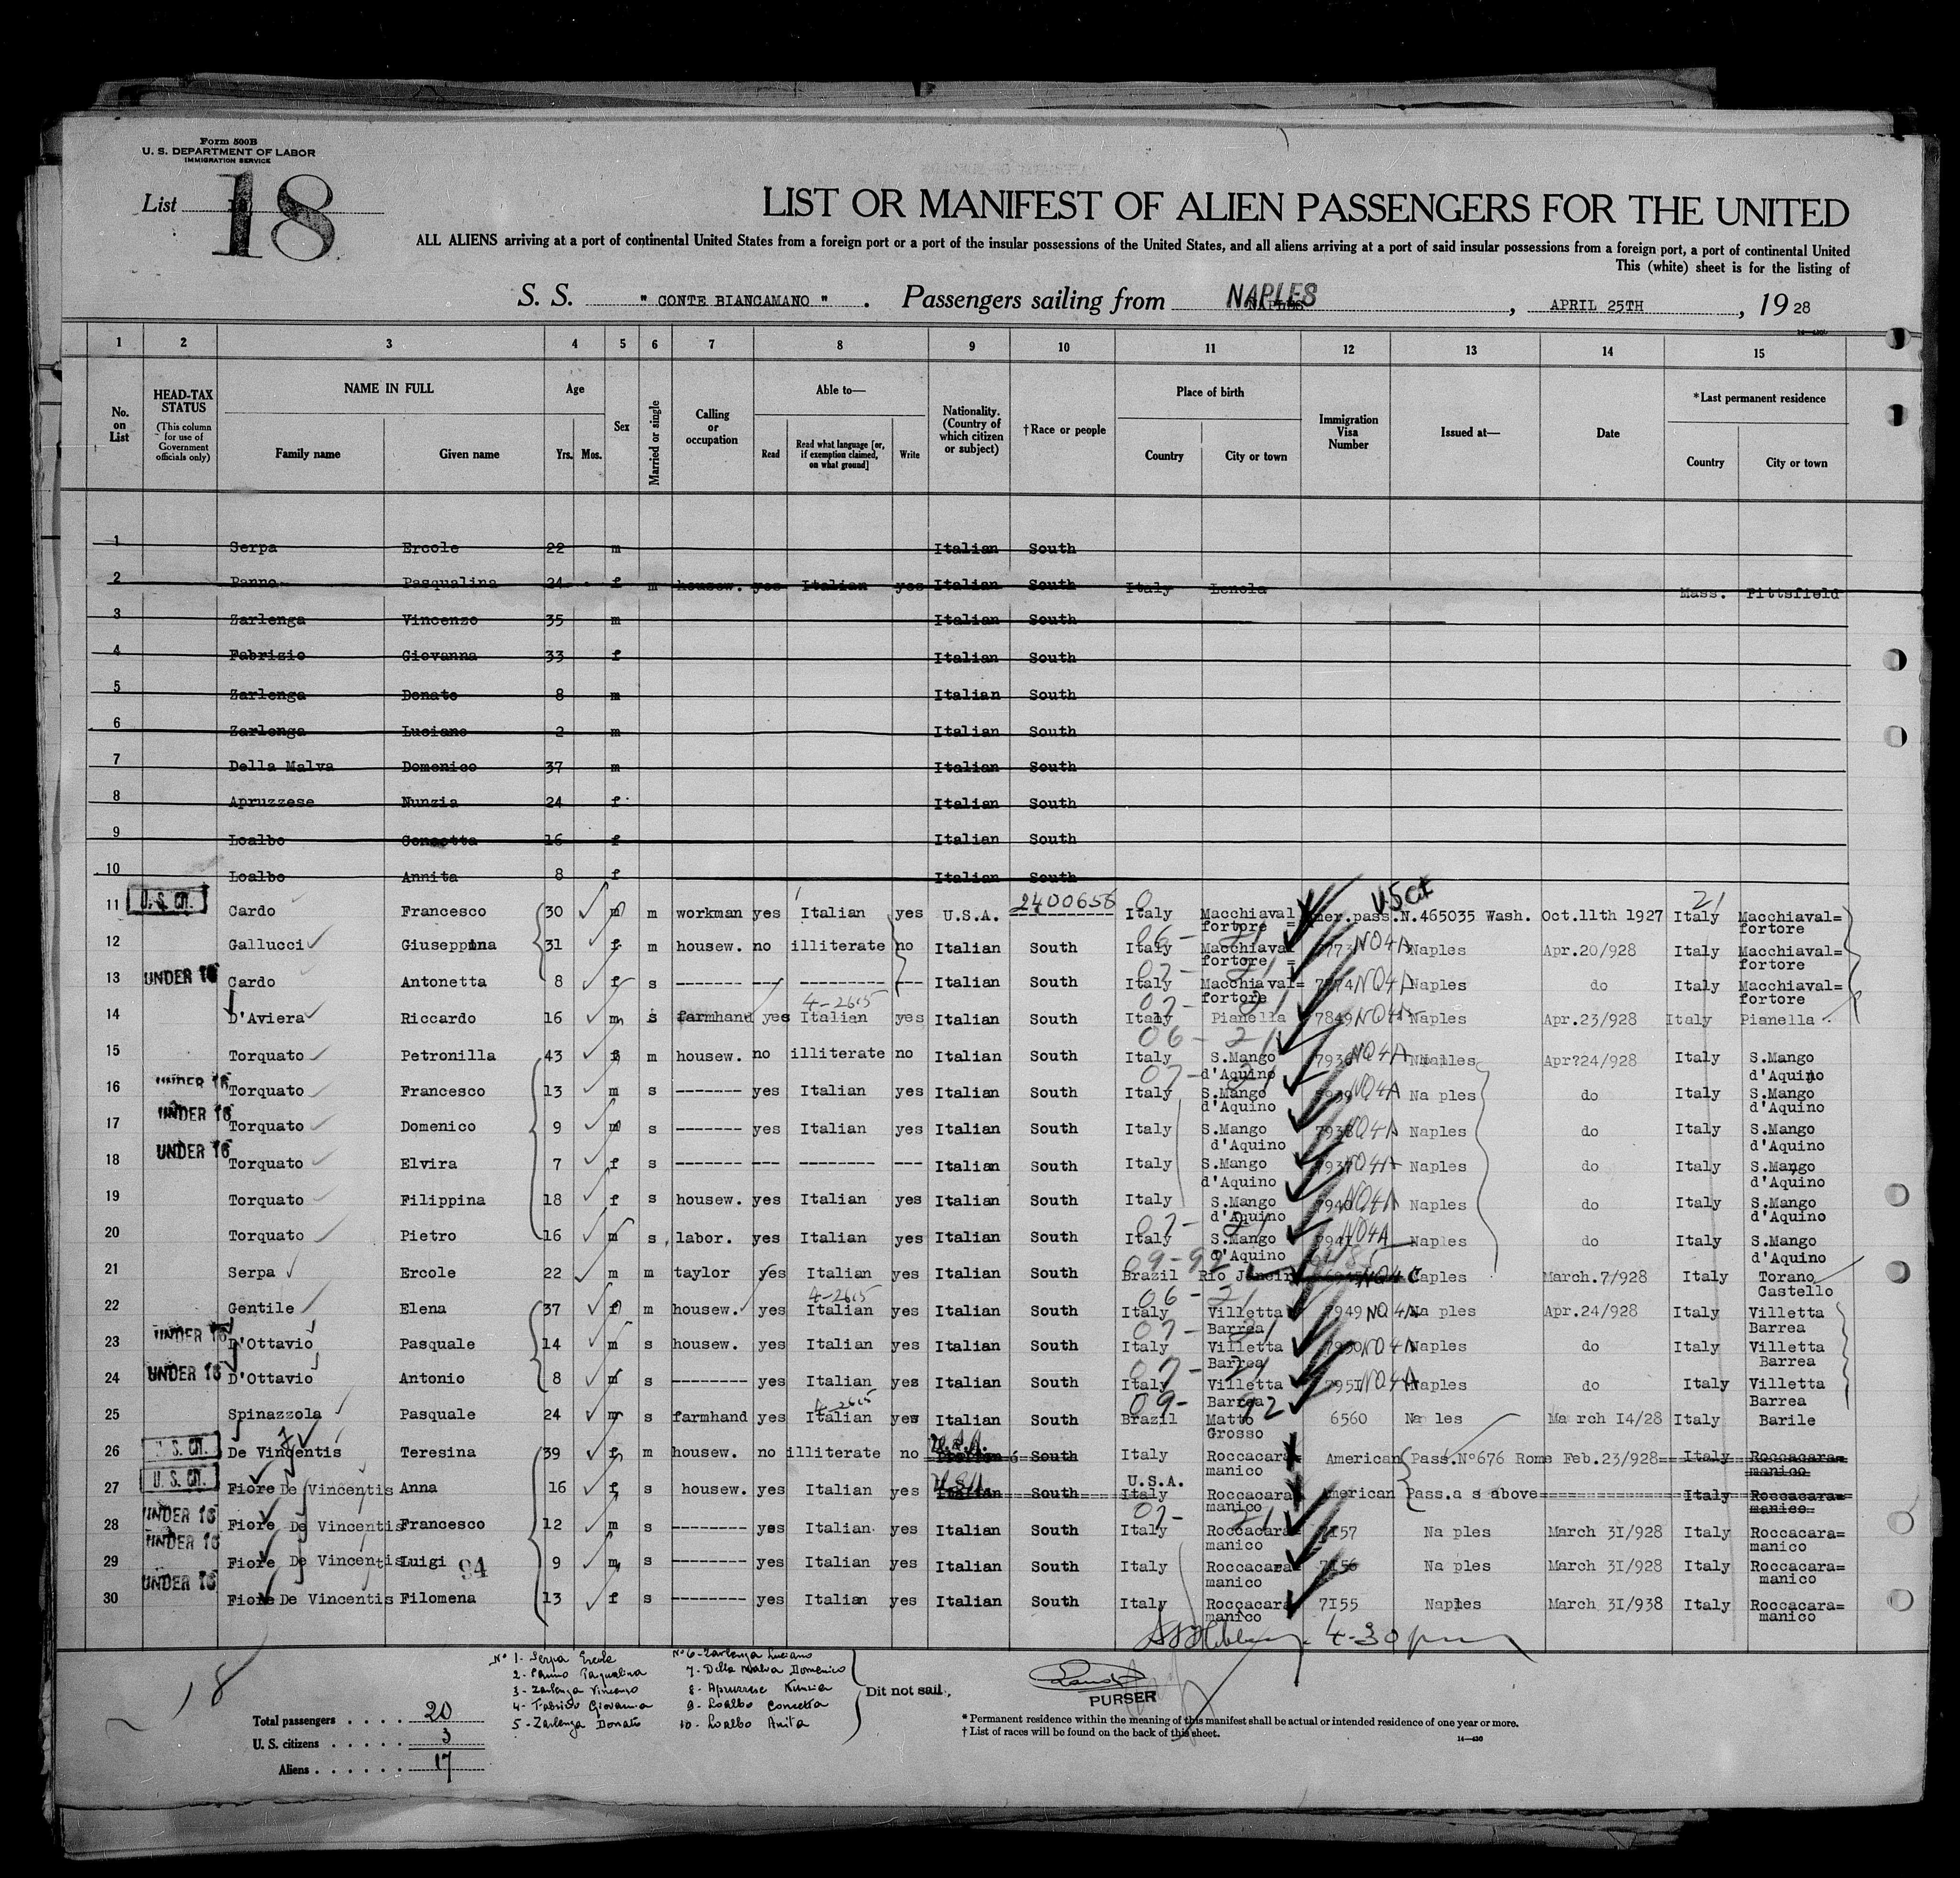 Form 500B
U. S. DEPARTMENT OF LABOR
IMMIGRATION SERVICE
List 18
LIST OR MANIFEST OF ALIEN PASSENGERS FOR THE UNITED
ALL ALIENS arriving at a port of continental United States from a foreign port or a port of the insular possessions of the United States, and all aliens arriving at a port of said insular possessions from a foreign port, a port of continental United
This (white) sheet is for the listing of
S. S. " CONTE BIANCAMANO " . Passengers sailing from NAPLES NAPLES , APRIL 25TH , 19 28
1 2 3 4 5 6 7 8 9 10 11 12 13 14 15
No. on List
HEAD-TAX STATUS (This column for use of Government officials only)
NAME IN FULL
Family name Given name
Age
Yrs. Mos.
Sex
Married or single
Calling or occupation
Able to—
Read Read what language [or, if exemption claimed, on what ground] Write
Nationality. (Country of which citizen or subject)
†Race or people
Place of birth
Country City or town
Immigration Visa Number
Issued at—
Date
*Last permanent residence
Country City or town
1 Serpa Ercole 22 m Italian South
2 Panno Pasqualina 24 f m housew. yes Italian yes Italian South Italy Lenola Mass. Pittsfield
3 Zarlenga Vincenzo 35 m Italian South
4 Fabrizio Giovanna 33 f Italian South
5 Zarlenga Donato 8 m Italian South
6 Zarlenga Luciano 2 m Italian South
7 Della Malva Domenico 37 m Italian South
8 Apruzzese Nunzia 24 f Italian South
9 Loalbo Concetta 16 f Italian South
10 Loalbo Annita 8 f Italian South
11 U.S. CIT. Cardo Francesco 30 m m workman yes Italian yes U.S.A. 2400658 Italy Macchiaval fortore = Amer.pass.N.465035 Wash. Oct.11th 1927 Italy Macchiaval= fortore
US Cit 21
12 Gallucci Giuseppina 31 f m housew. no illiterate no Italian South Italy Macchiaval fortore = 7773 NQ4A Naples Apr.20/928 Italy Macchiaval= fortore
13 UNDER 16 Cardo Antonetta 8 f s ------- --- --------- --- Italian South Italy Macchiaval= fortore 7774 NQ4A Naples do Italy Macchiaval= fortore
4-2615
14 D'Aviera Riccardo 16 m s farmhand yes Italian yes Italian South Italy Pianella 7849 NQ4A Naples Apr.23/928 Italy Pianella
06 - 21
15 Torquato Petronilla 43 f m housew. no illiterate no Italian South Italy S.Mango d'Aquino 7936 NQ4A Naples Apr?24/928 Italy S.Mango d'Aquino
16 UNDER 16 Torquato Francesco 13 m s ------- yes Italian yes Italian South Italy S.Mango d'Aquino 7939 NQ4A Na ples do Italy S.Mango d'Aquino
17 UNDER 16 Torquato Domenico 9 m s ------- yes Italian yes Italian South Italy S.Mango d'Aquino 7938 NQ4A Naples do Italy S.Mango d'Aquino
18 UNDER 16 Torquato Elvira 7 f s ------- --- -------- --- Italian South Italy S.Mango d'Aquino 7937 NQ4A Naples do Italy S.Mango d'Aquino
19 Torquato Filippina 18 f s housew. yes Italian yes Italian South Italy S.Mango d'Aquino 7940 NQ4A Naples do Italy S.Mango d'Aquino
20 Torquato Pietro 16 m s, labor. yes Italian yes Italian South Italy S.Mango d'Aquino 7941 NQ4A Naples do Italy S.Mango d'Aquino
09-92
21 Serpa Ercole 22 m m taylor yes Italian yes Italian South Brazil Rio Janeir NQ4C Naples March.7/928 Italy Torano Castello
4-2615 06 - 21
22 Gentile Elena 37 f m housew. yes Italian yes Italian South Italy Villetta Barrea 7949 NQ4A Na ples Apr.24/928 Italy Villetta Barrea
23 UNDER 16 D'Ottavio Pasquale 14 m s housew. yes Italian yes Italian South Italy Villetta Barrea 7950 NQ4A Naples do Italy Villetta Barrea
24 UNDER 16 D'Ottavio Antonio 8 m s -------- yes Italian yes Italian South Italy Villetta Barrea 7951 NQ4A Naples do Italy Villetta Barrea
4-2615 09- 92
25 Spinazzola Pasquale 24 m s farmhand yes Italian yes Italian South Brazil Matto Grosso 6560 Na les Ma rch I4/28 Italy Barile
26 U.S. CIT. De Vincentis Teresina 39 f m housew. no illiterate no U.S.A. Italian South Italy Roccacara= manico American Pass.Nº676 Rome Feb.23/928 Italy Roccacara= manico
27 U.S. CIT. Fiore De Vincentis Anna 16 f housew. yes Italian yes USA Italian South U.S.A. Italy Roccacara= manico American Pass.a s above Italy Roccacara= manico
28 UNDER 16 Fiore De Vincentis Francesco 12 m s -------- yes Italian yes Italian South Italy Roccacara= manico 7I57 Na ples March 3I/928 Italy Roccacara= manico
29 UNDER 16 Fiore De Vincentis Luigi 94 9 m s -------- yes Italian yes Italian South Italy Roccacara= manico 7I56 Na ples March 3I/928 Italy Roccacara= manico
30 UNDER 16 Fiore De Vincentis Filomena 13 f s -------- yes Italian yes Italian South Italy Roccacara manico 7I55 Naples March 3I/938 Italy Roccacara= manico
4-30 pm
18
Nº 1- Serpa Ercole
2- Panno Pasqualina
3- Zarlenga Vincenzo
4- Fabrizio Giovanna
5- Zarlenga Donato
Nº 6- Zarlenga Luciano
7- Della Malva Domenico
8- Apruzzese Nunzia
9- Loalbo Concetta
10- Loalbo Anita
Dit not sail.,
PURSER
Total passengers . . . . 20
U. S. citizens . . . . . 3
Aliens . . . . . . 17
* Permanent residence within the meaning of this manifest shall be actual or intended residence of one year or more.
† List of races will be found on the back of this sheet.
14—430